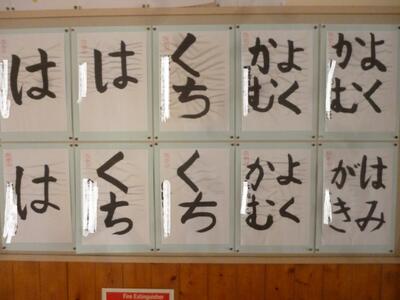 よく
かむ
よく
かむ
くち
は
は
はみ
がき
よく
かむ
くち
くち
は
Fire Extinguisher